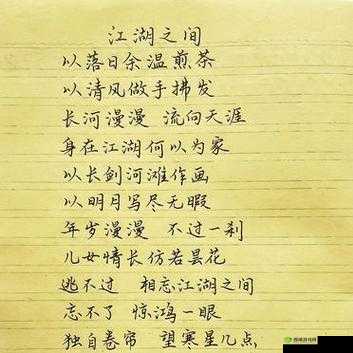 江湖之间
以落日余温煎茶
以清风做手拂发
长河漫漫 流向天涯
身在江湖何以为家
以长剑河滩作画
以明月写尽无暇
年岁漫漫 不过一刹
儿女情长仿若昙花
逃不过 相忘江湖之间
忘不了 惊鸿一眼
独自卷帘 望寒星几点